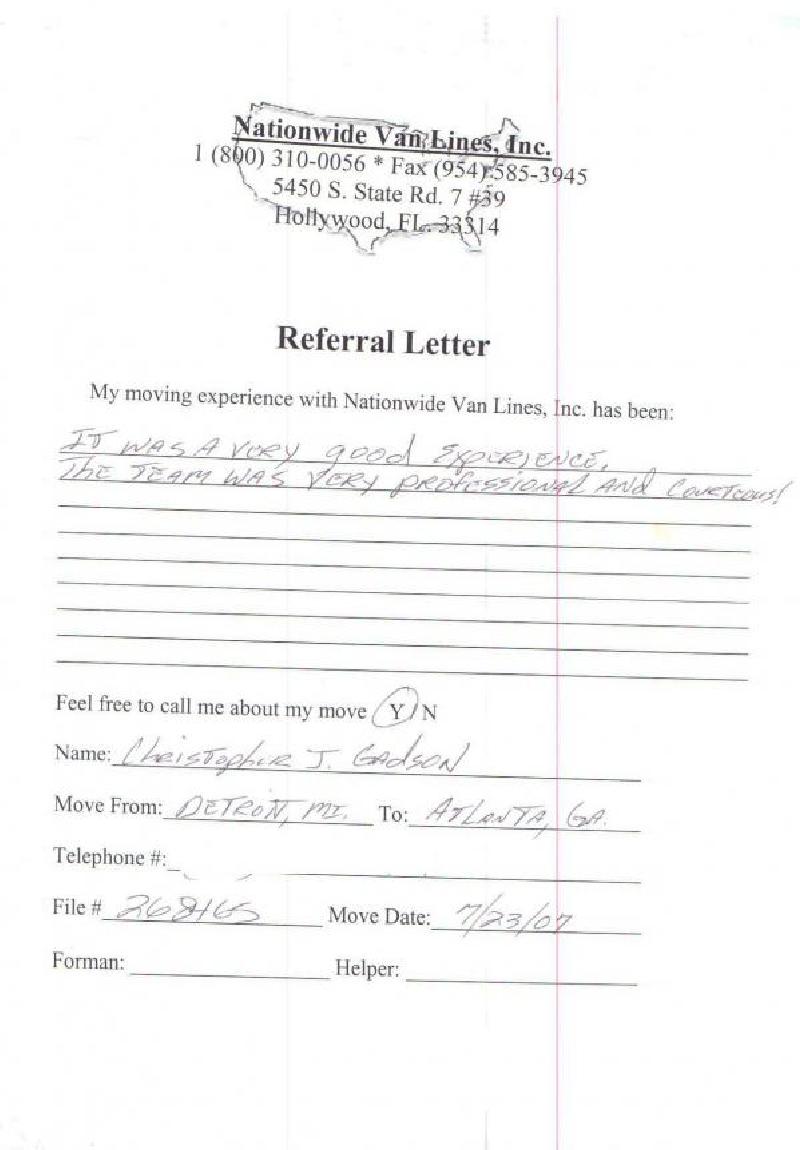 Nationwide Van Lines, Inc.
1 (800) 310-0056 * Fax (954) 585-3945
5450 S. State Rd. 7 #39
Hollywood, FL. 33314
Referral Letter
My moving experience with Nationwide Van Lines, Inc. has been:
IT WAS A VERY good EXPERIENCE.
THE TEAM WAS VERY PROFESSIONAL AND COURTEOUS!
Feel free to call me about my move Y N
Name: Christopher J. GADSON
Move From: DETROIT, MI. To: ATLANTA, GA.
Telephone #:
File # 268165 Move Date: 7/23/07
Forman: Helper: